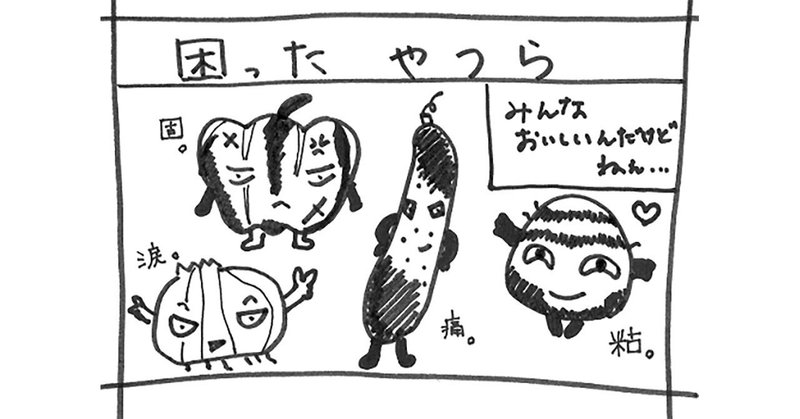 困った やつら
みんな
おいしいんだけど
ねぇ…
固。
涙。
痛。
粘。